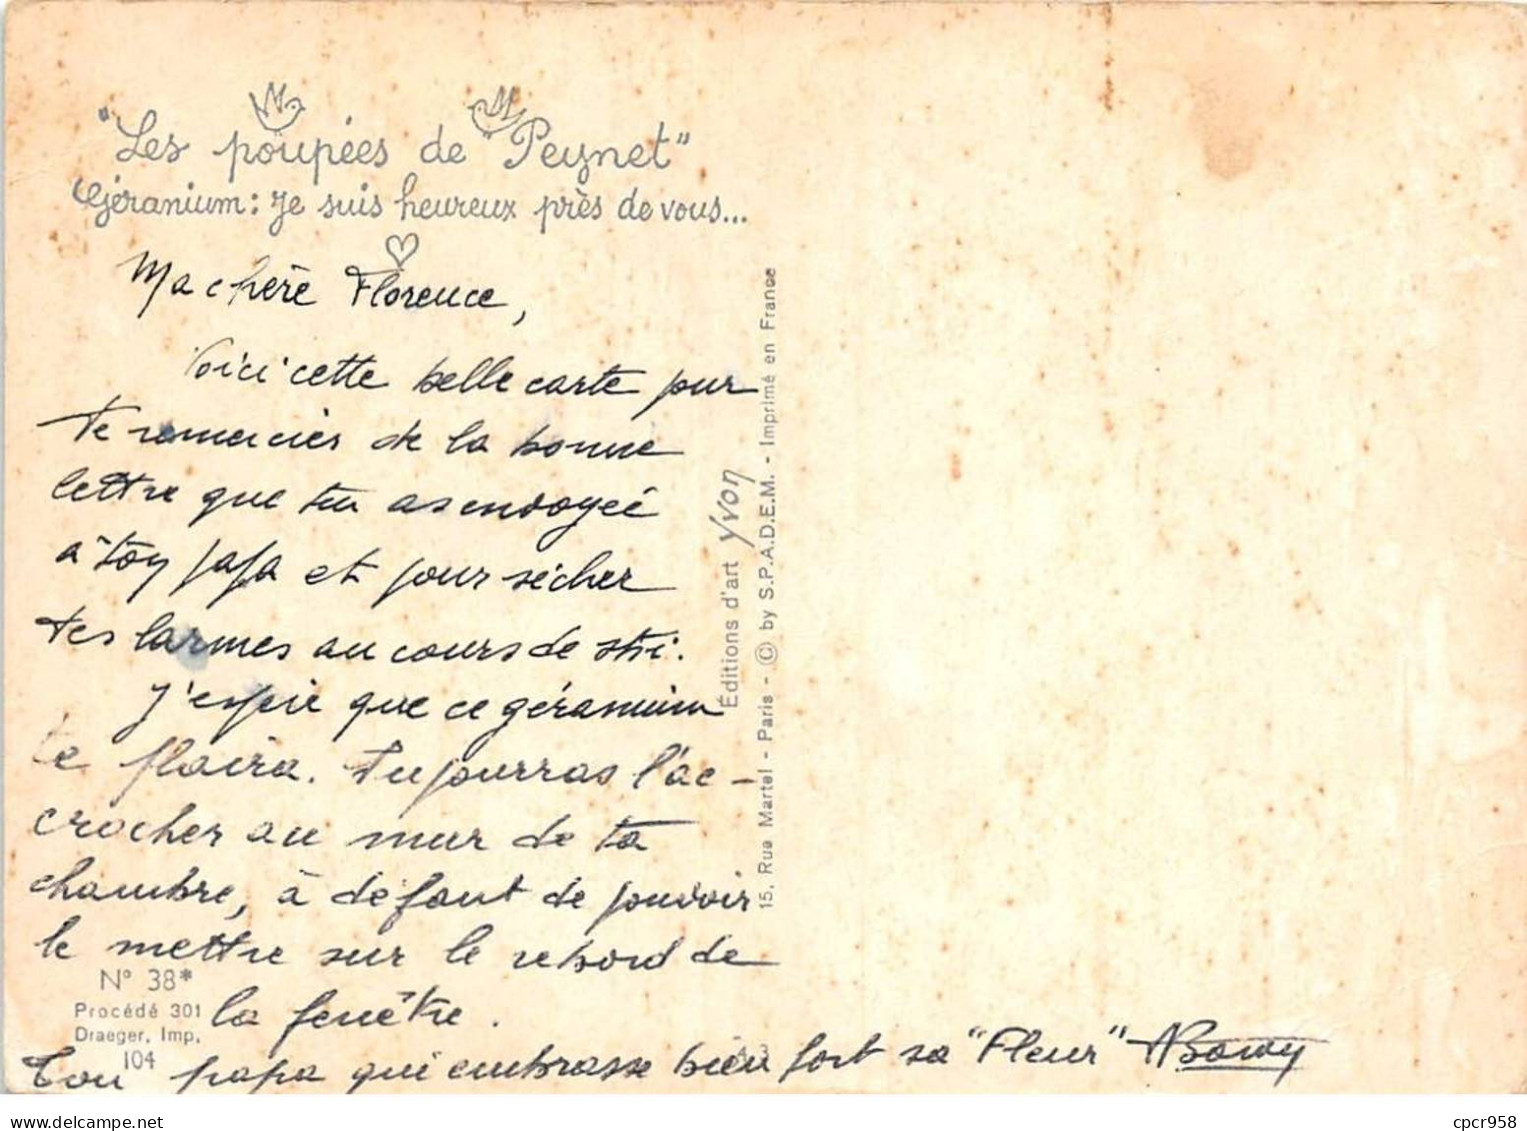 "Les poupées de Peynet"
Géranium: Je suis heureux près de vous...
Ma chère Florence,
Voici cette belle carte pour
te remercier de la bonne
lettre que tu as envoyée
à ton papa et pour sécher
tes larmes au cours de ski.
J'espère que ce géranium
te plaira. Tu pourras l'ac-
crocher au mur de ta
chambre, à défaut de pouvoir
le mettre sur le rebord de
la fenêtre.
Ton papa qui embrasse bien fort sa "Fleur"
N° 38*
Procédé 301
Draeger, Imp.
104
Éditions d'art Yvon
15, Rue Martel - Paris - © by S.P.A.D.E.M. - Imprimé en France
cpcr958